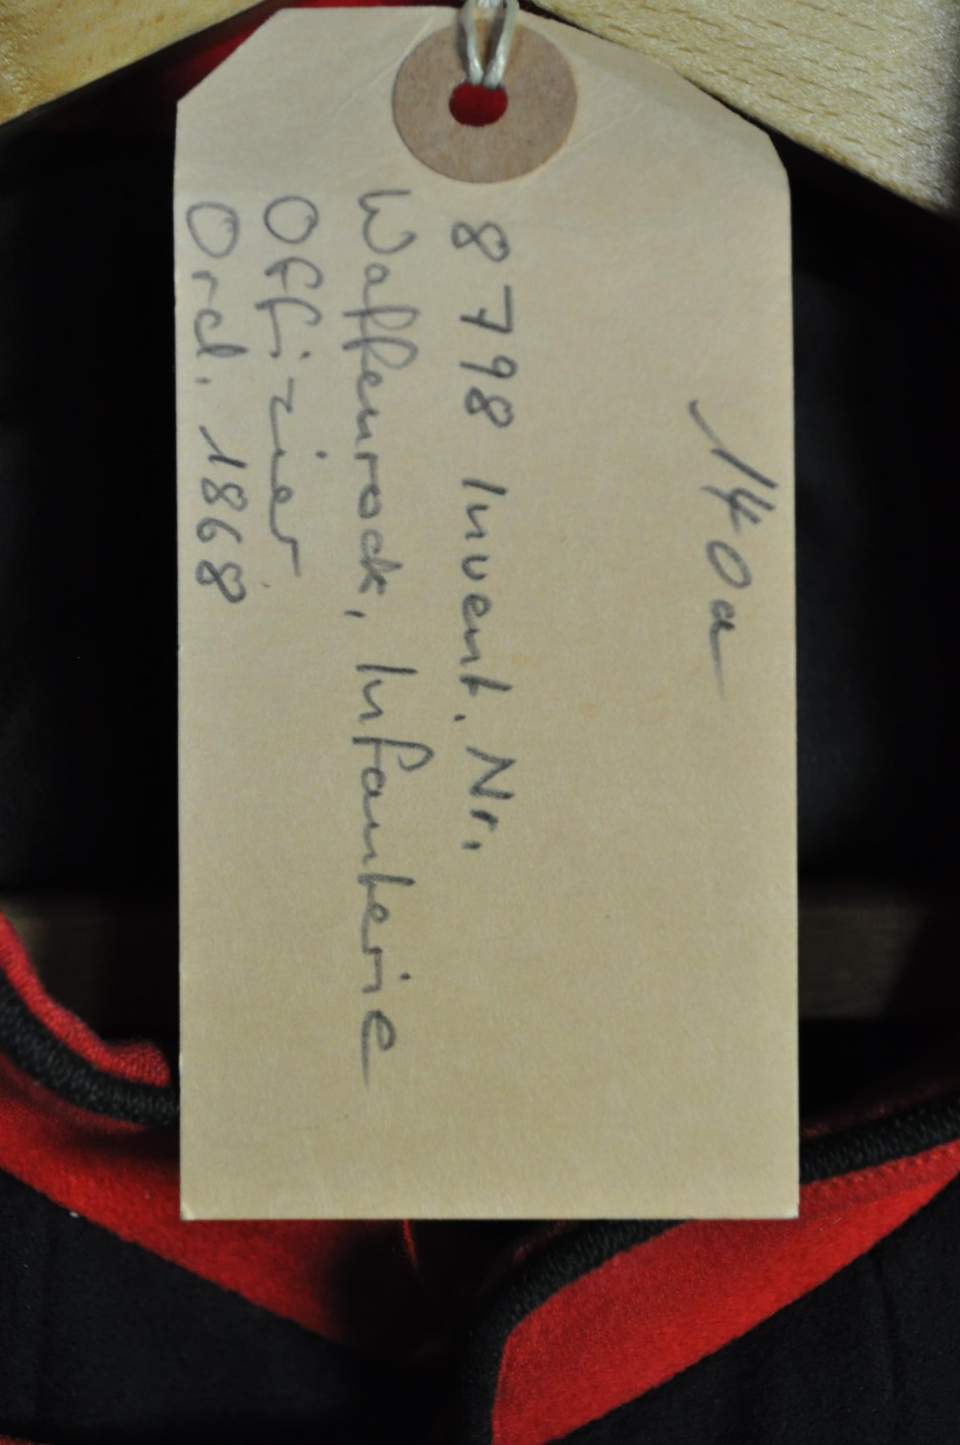 140a
8798 Invent. Nr.
Waffenrock, Infanterie
Offizier
Ord. 1868